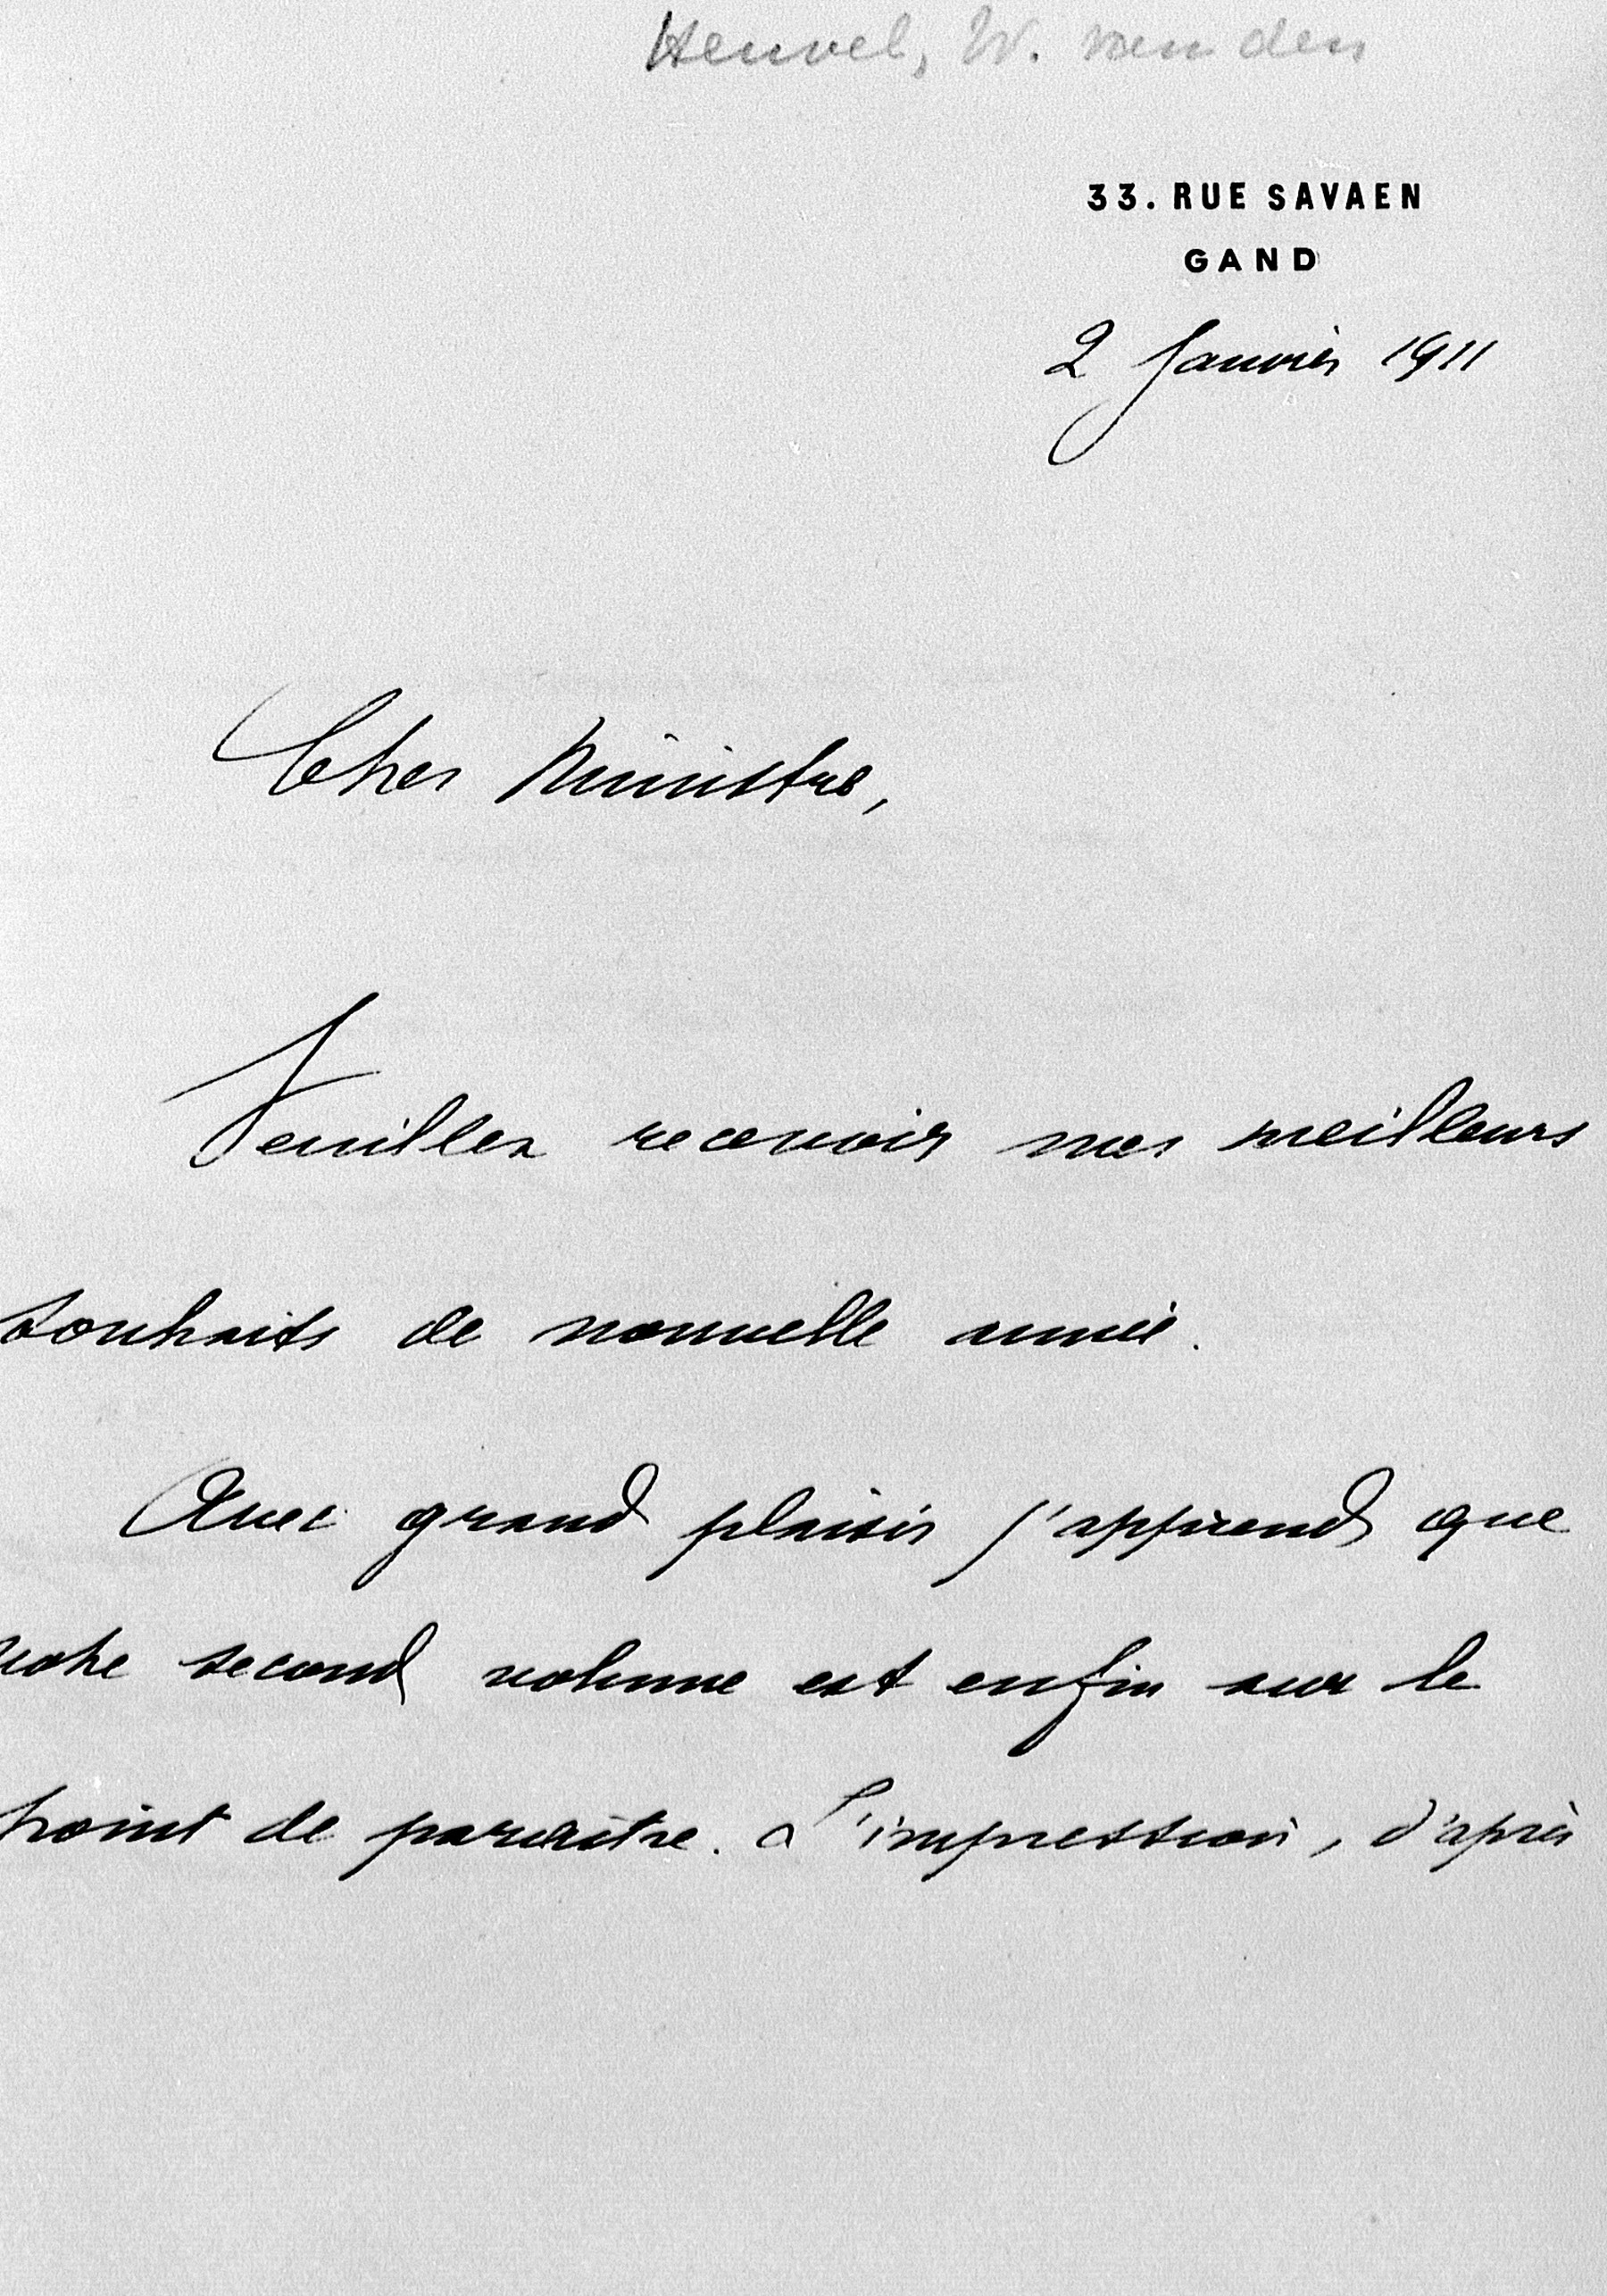 Heuvel, W. van den
33. RUE SAVAEN
GAND
2 Janvier 1911
Cher Ministre,
Veuillez recevoir mes meilleurs
souhaits de nouvelle année.
Avec grand plaisir j'apprends que
votre second volume est enfin sur le
point de paraître. L'impression, d'après